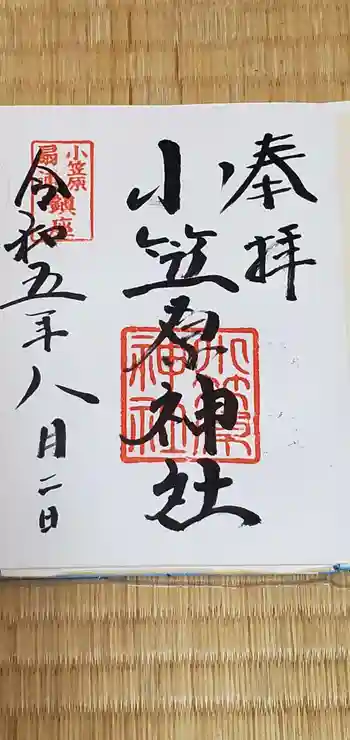 奉拝
小笠原神社
小笠原神社
小笠原
鎮座
令和五年八月二日